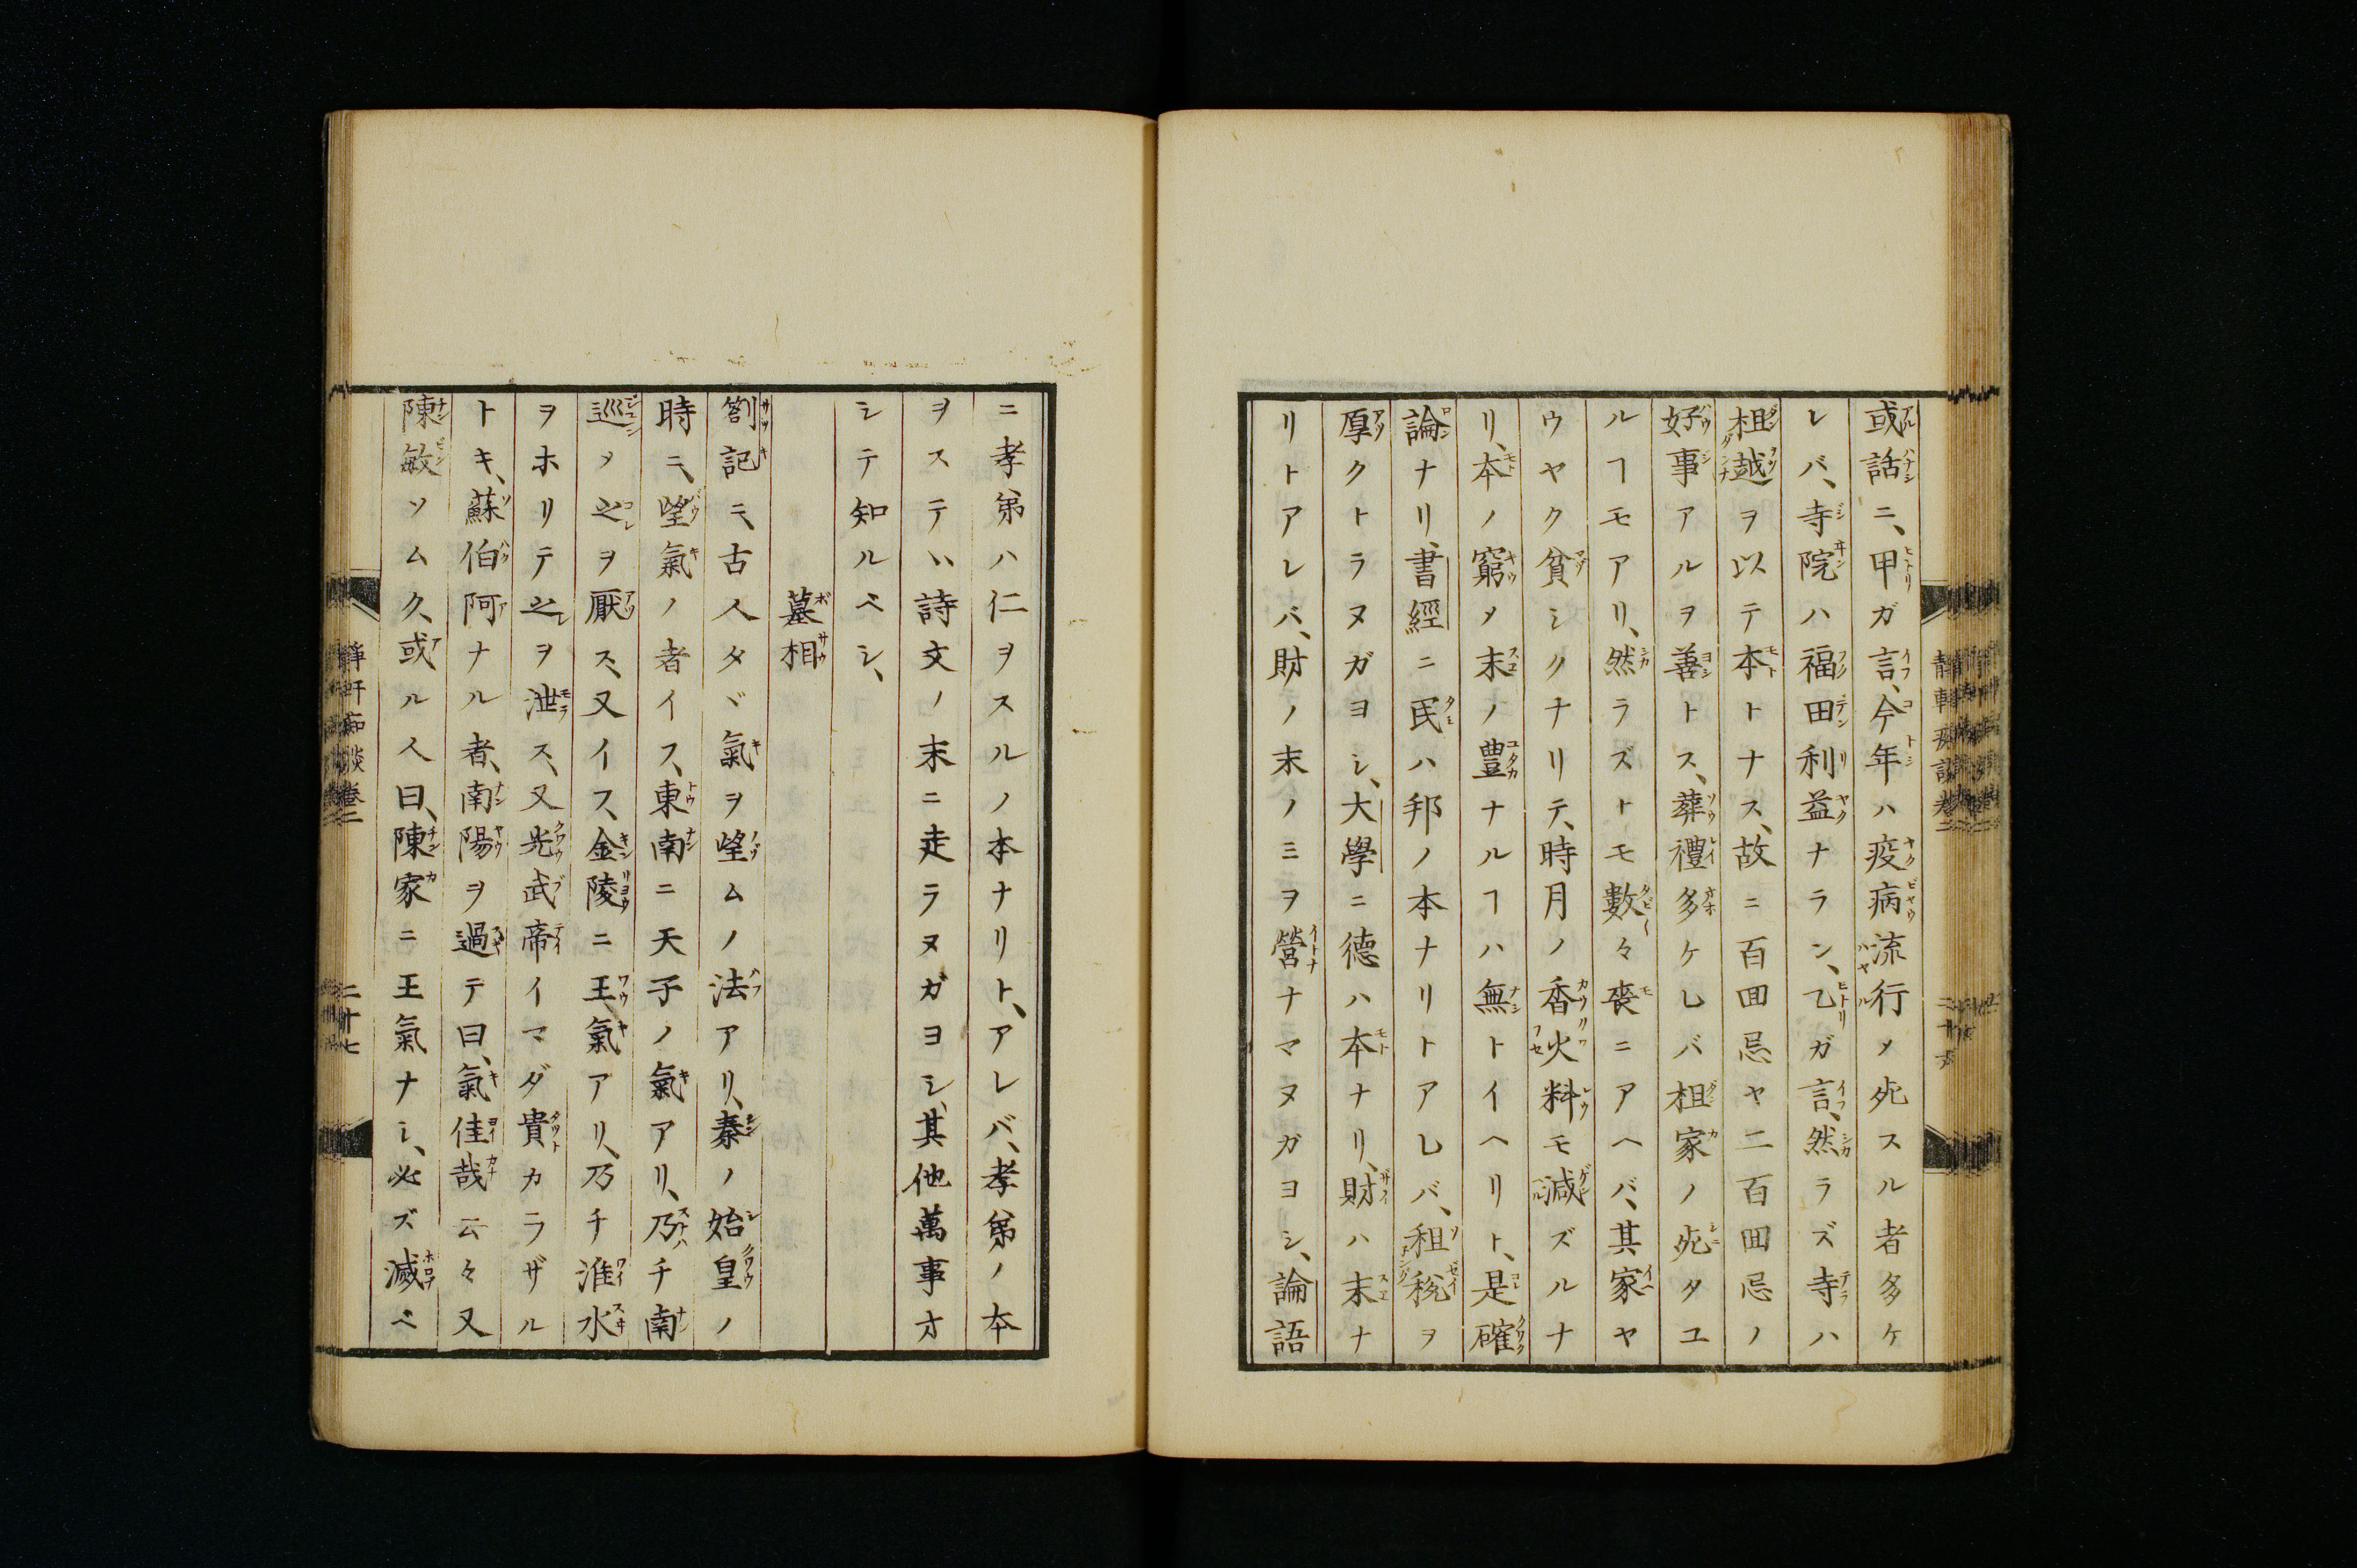 或話ニ、甲ガ言、今年ハ疫病流行メ死スル者多ケ
レバ、寺院ハ福田利益ナラン、乙ガ言、然ラズ寺ハ
柤越ヲ以テ本トナス、故ニ百囬忌ヤ二百囬忌ノ
好事アルヲ善トス、葬禮多ケレバ柤家ノ死タユ
ルヿモアリ、然ラズトモ數々喪ニアヘバ、其家ヤ
ウヤク貧シクナリテ、時月ノ香火料モ減ズルナ
リ、本ノ窮メ末ノ豐ナルヿハ無トイヘリト、是確
論ナリ、書經ニ民ハ邦ノ本ナリトアレバ、租税ヲ
厚クトラヌガヨシ、大學ニ德ハ本ナリ、財ハ末ナ
リトアレバ、財ノ末ノミヲ營ナマヌガヨシ、論語
ニ孝弟ハ仁ヲスルノ本ナリト、アレバ、孝弟ノ本
ヲステヽ詩文ノ末ニ走ラヌガヨシ、其他萬事オ
シテ知ルベシ、
墓相
劄記ニ、古人タヾ氣ヲ望ムノ法アリ、秦ノ始皇ノ
時ニ、望氣ノ者イス、東南ニ天子ノ氣アリ、乃チ南
巡メ之ヲ厭ス、又イス、金陵ニ王氣アリ、乃チ淮水
ヲホリテ之ヲ泄ス、又光武帝イマダ貴カラザル
トキ、蘇伯阿ナル者、南陽ヲ過テ曰、氣佳哉云々又
陳敏ソムク、或ル人曰、陳家ニ王氣ナシ、必ズ滅ベ
靜軒痴談卷二
二十七